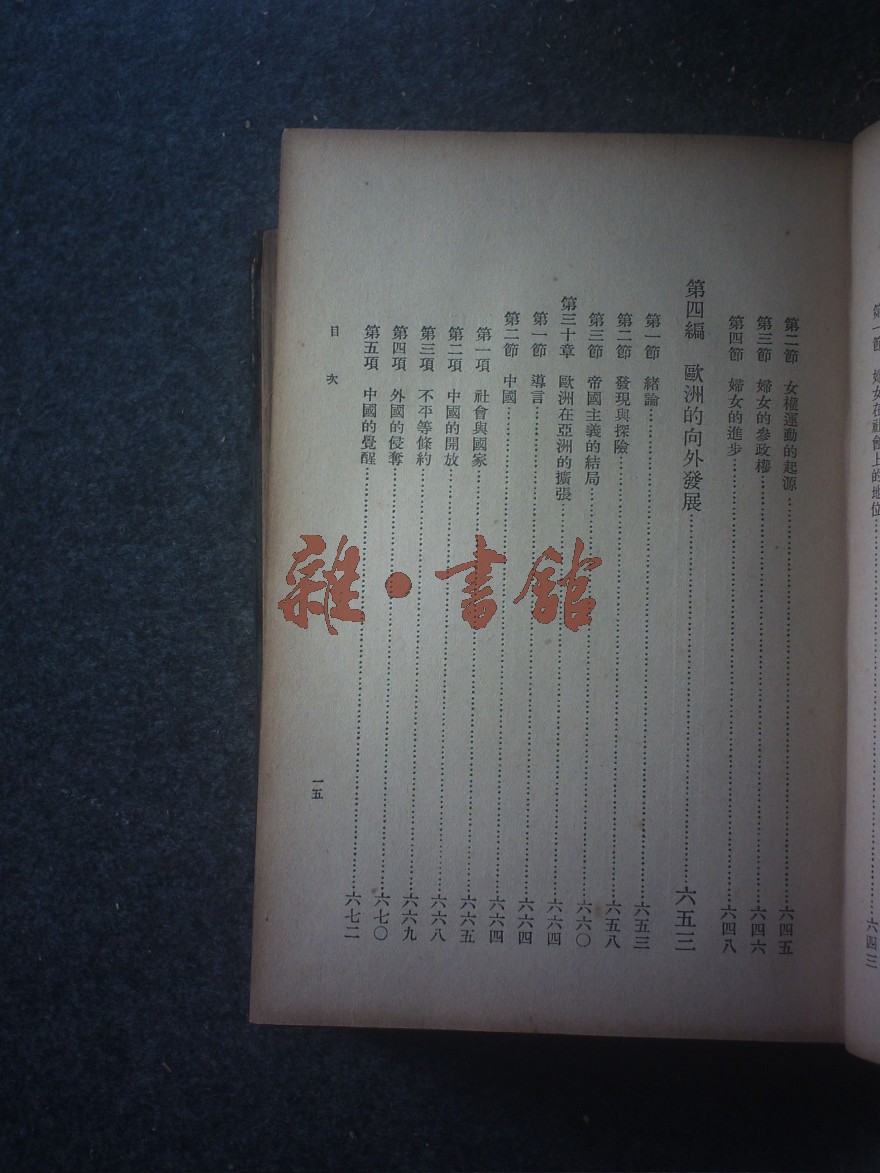 第一節 婦女在社會上的地位……六四三
第二節 女權運動的起源……六四五
第三節 婦女的參政權……六四六
第四節 婦女的進步……六四八
第四編 歐洲的向外發展……六五三
第一節 緒論……六五三
第二節 發現與探險……六五八
第三節 帝國主義的結局……六六〇
第三十章 歐洲在亞洲的擴張……六六四
第一節 導言……六六四
第二節 中國……六六四
第一項 社會與國家……六六五
第二項 中國的開放……六六八
第三項 不平等條約……六六九
第四項 外國的侵奪……六七〇
第五項 中國的覺醒……六七二
目次
一五
雜·書館